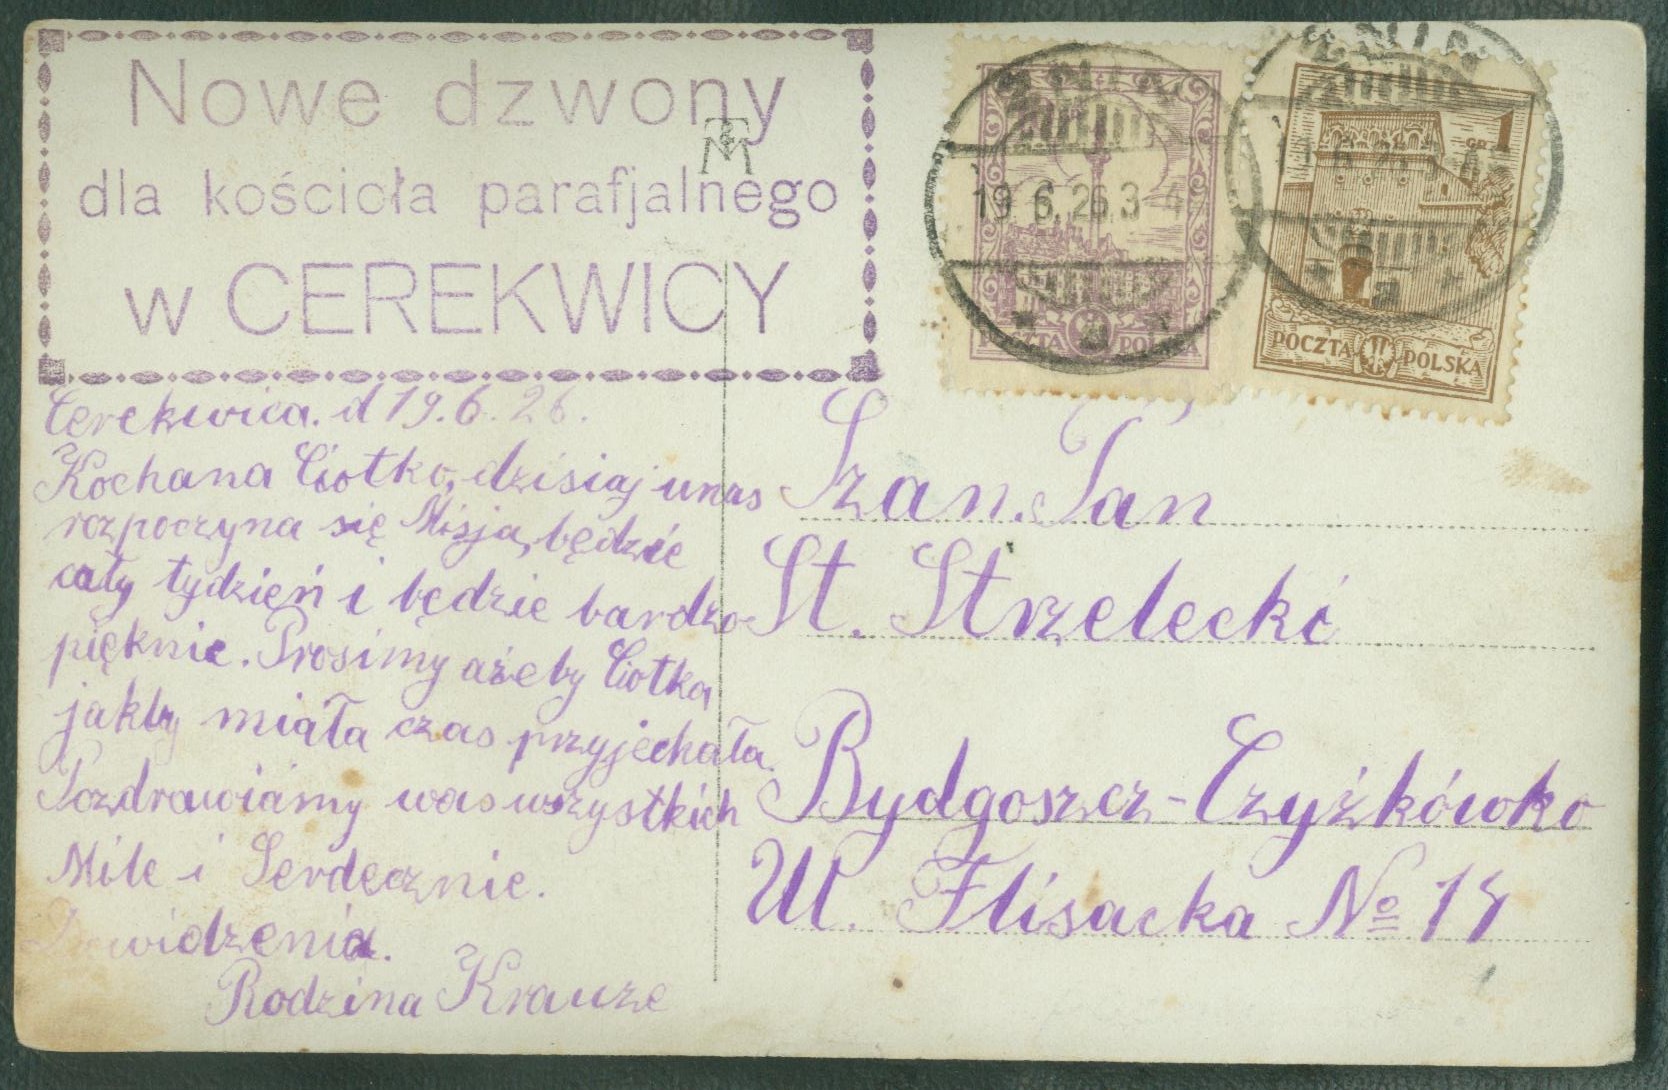 Nowe dzwony
dla kościoła parafjalnego
w CEREKWICY
Cerekwica. d 19.6.26.
Kochana Ciotko, dzisiaj u nas
rozpoczyna się Misja, będzie
cały tydzień i będzie bardzo
pięknie. Prosimy ażeby Ciotka
jakby miała czas przyjechała.
Pozdrawiamy was wszystkich
Mile i Serdecznie.
Dowidzenia.
Rodzina Krauze
ŻNIN
19.6.26.3-4
POCZTA POLSKA
ŻNIN
a
GR 1
POCZTA POLSKA
Szan. Pan
St. Strzelecki
Bydgoszcz-Czyżkówko
Ul. Flisacka No 14